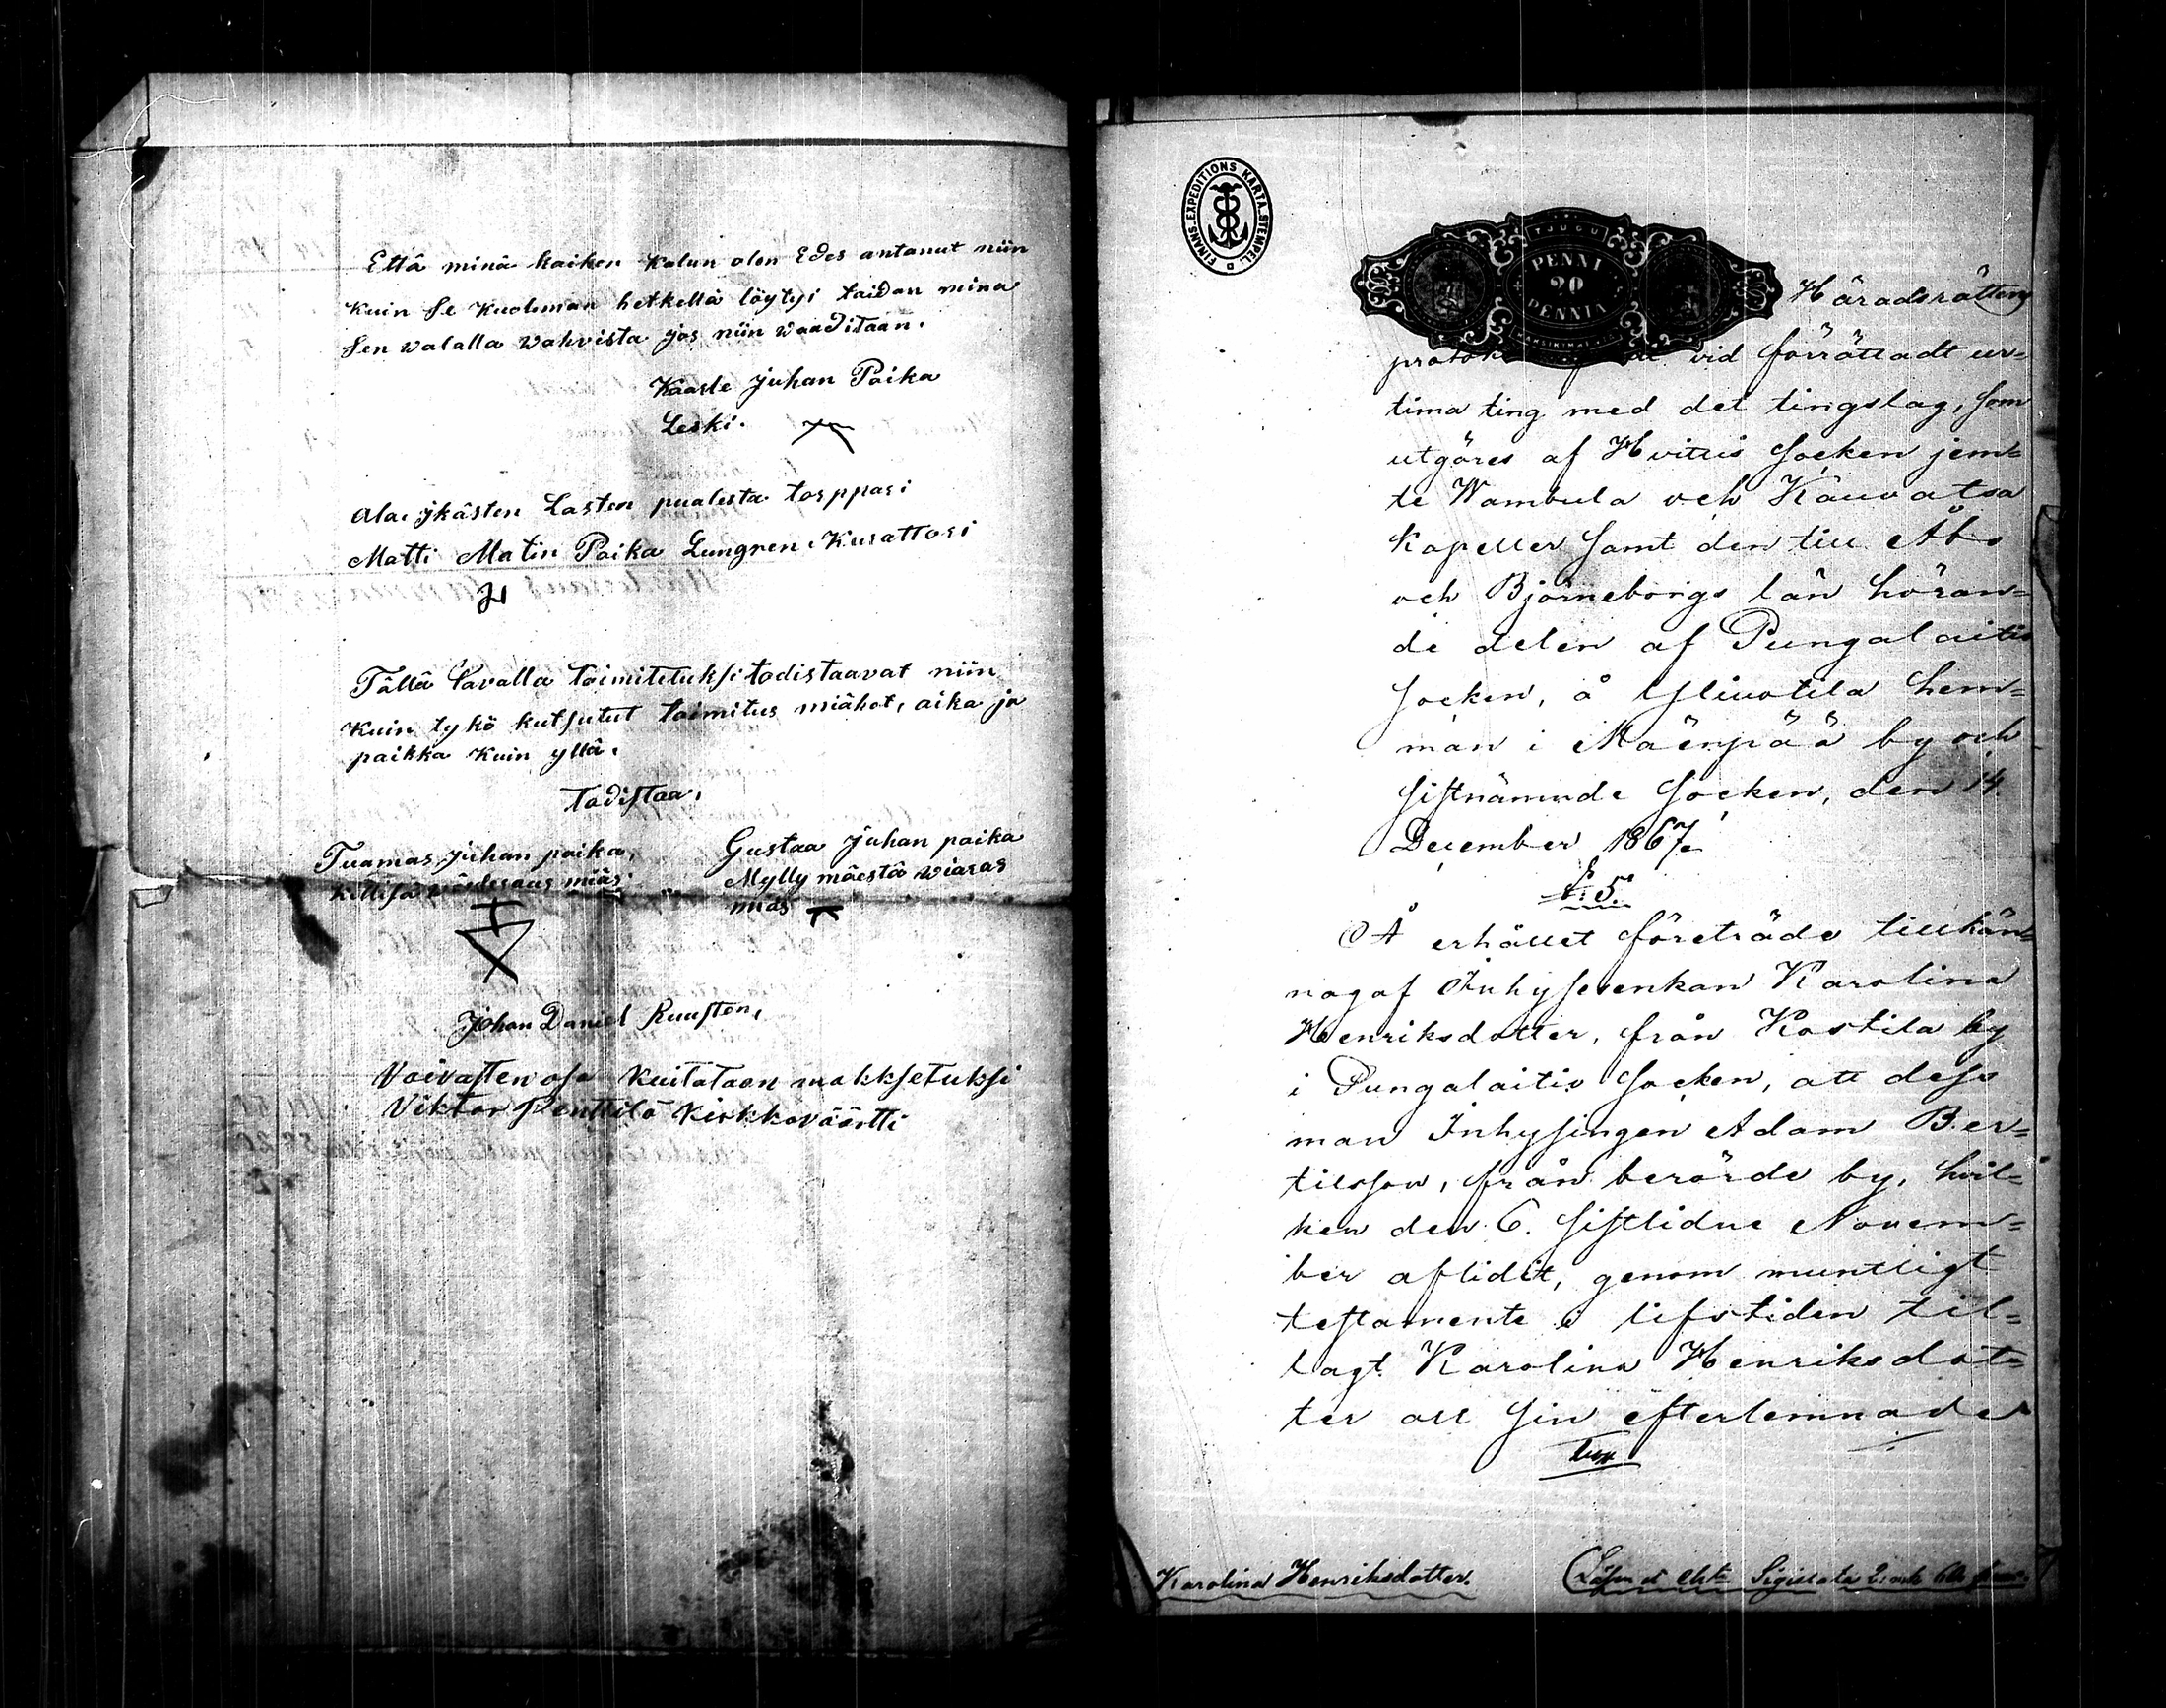 Että minä kaiken kalun olen Edes antanut niin
kuin se kuoleman hetkellä löytyi taidan minä
sen walalla wahvista jos niin waaditaan.
Kaarle Juhan Poika
Leski.
Ala ijkästen Lasten puolesta torppari
Matti Matin Poika Lungren. Kurattori
Tällä tavalla toimitetuksi todistaavat niin
kuin tykö kutsutut toimitus miähet, aika ja
paikka kuin yllä.
Todistaa,
Tuamas Juhan poika,
miäs
Gustaa Juhan poika
Mylly mäestä wiaras
miäs
Johan Daniel Ruusten,
Vaivasten osa kuitataan maksetuksi
Viktor Penttilä Kirkkoväärtti
FINANS-EXPEDITIONS KARTA. STEMPEL. D
TJUGU
PENNI
20
PENNIÄ
Häradsrättens
vid förrättadt ur=
tima ting med det tingslag, som
utgöres af Hvittis Socken jem=
te Wambula och Kauvatsa
kapeller samt den till Åbo
och Björneborgs län höran=
de delen af Pungalaitio
Socken, å Yliuotila hem=
man i Mäenpää by och
sistnämnde Socken, den 14
December 1867.
§ 5.
Å erhållet företräde tillkän=
nagaf Inhysesenkan Karolina
Henriksdotter, från Kostila by
i Pungalaitio Socken, att dess
man Inhysingen Adam Ber=
tilsson, från berörde by, hvil=
ken den 6. sistlidne Novem=
ber aflidit, genom muntligt
testamente i lifstiden til=
lagt Karolina Henriksdot=
ter all sin efterlemnade
Karolina Henriksdotter.